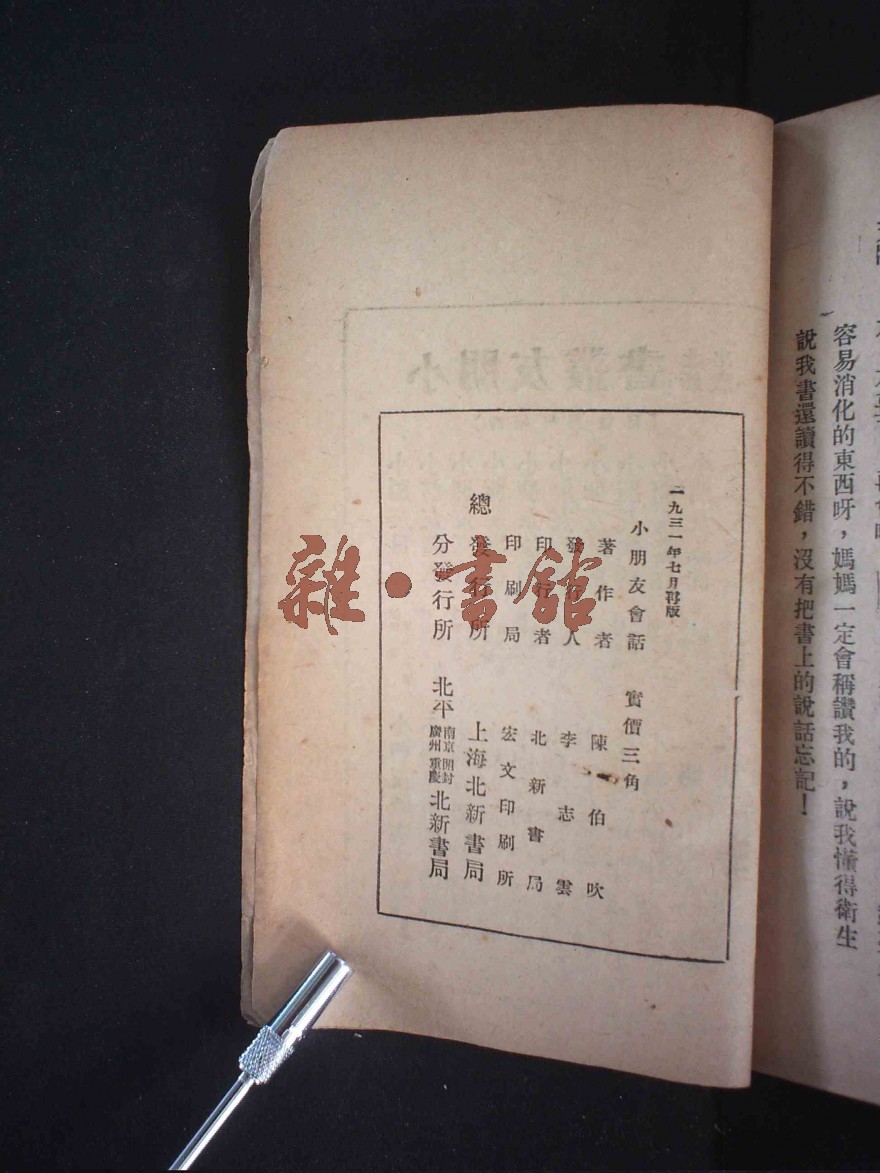 容易消化的東西呀，媽媽一定會稱讚我的，說我懂得衛生
說我書還讀得不錯，沒有把書上的說話忘記！
一九三一年七月再版
小朋友會話　實價三角
著作者　陳伯吹
發行人　李志雲
印行者　北新書局
印刷局　宏文印刷所
總發行所　上海北新書局
分發行所　北平南京開封廣州重慶北新書局
雜·書館